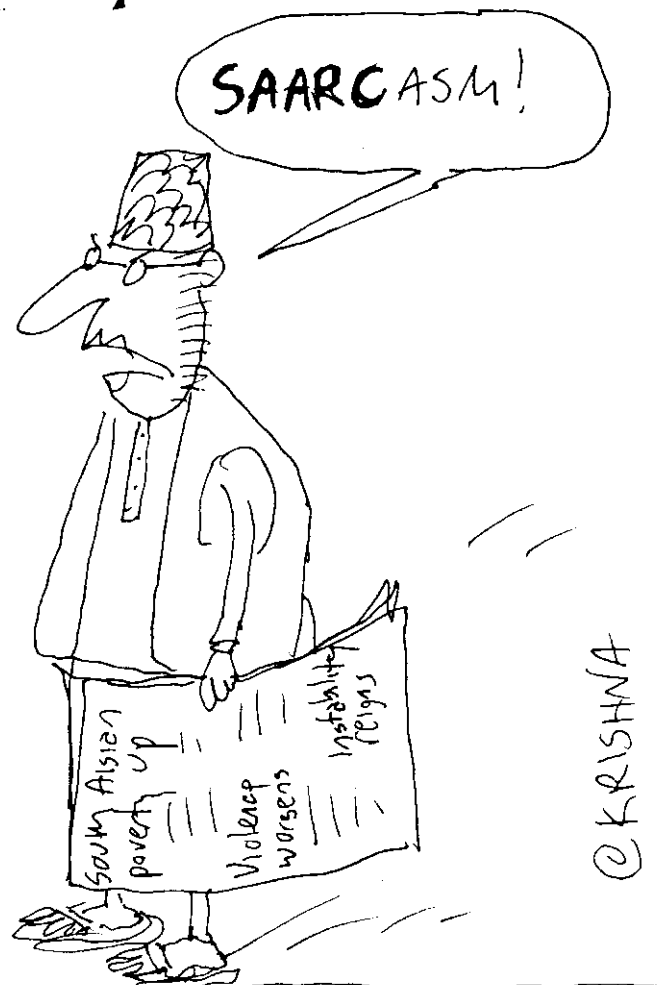 SAARCASM!
South Alsian
poverty up
Violence
worsens
Instability
reigns
@KRISHNA